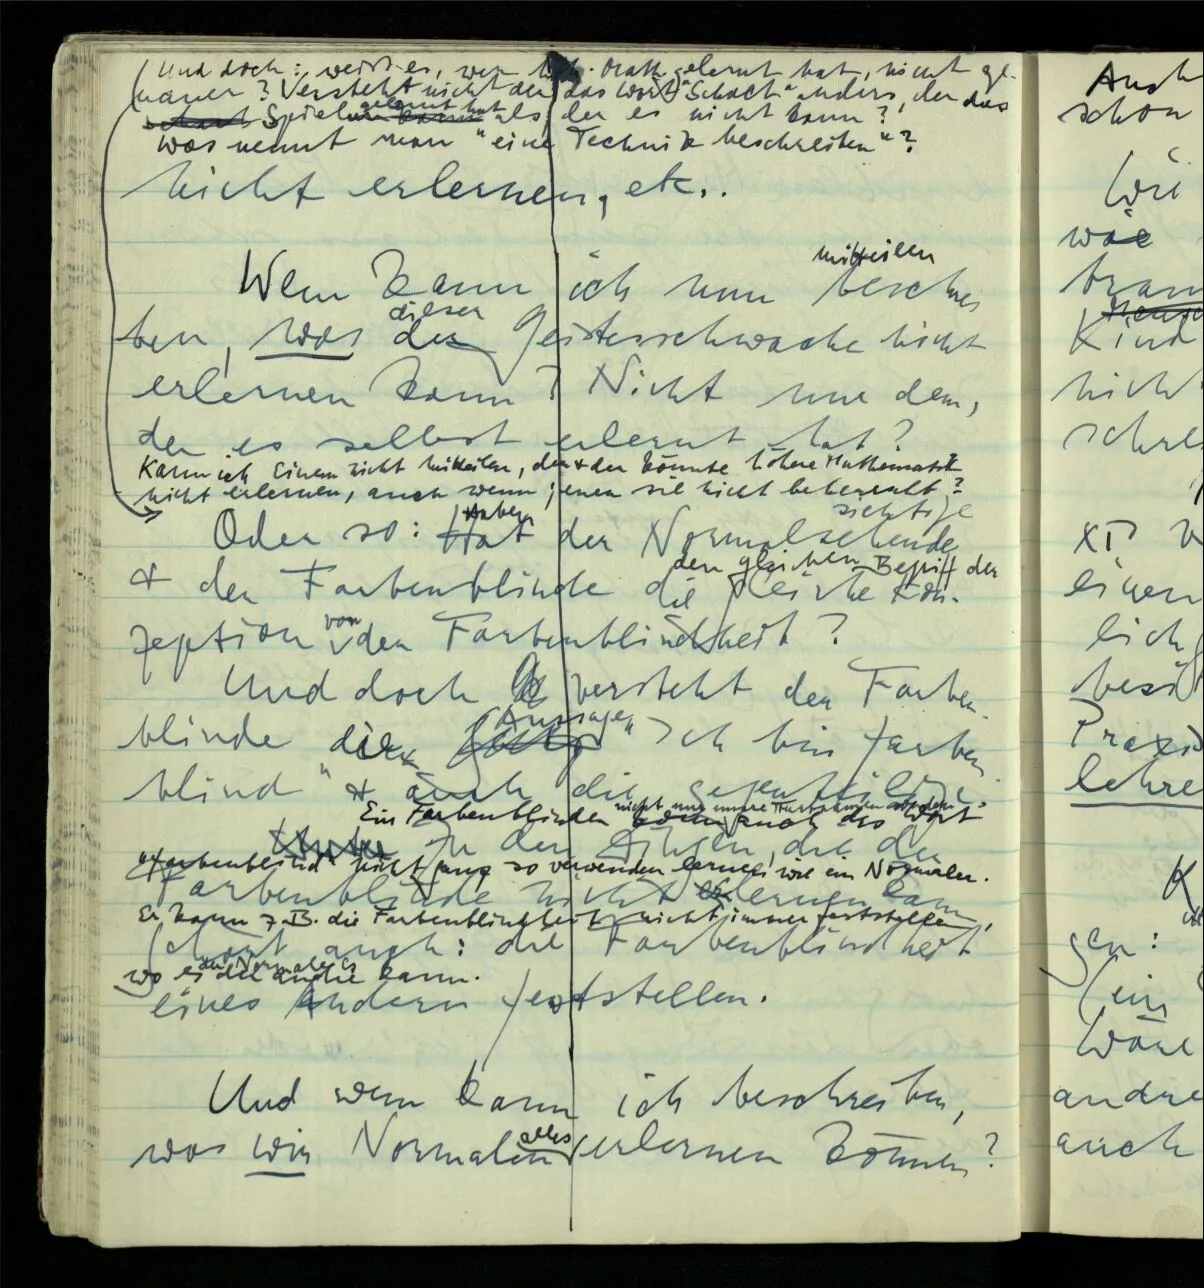 Und doch: weiß es, wer höh. Math. gelernt hat, nicht ge-
nauer? Versteht nicht der das Wort "Schach" anders, der das
Spiel gelernt hat als der es nicht kann?
Was nennt man "eine Technik beschreiben"?
nicht erlernen, etc..
mitteilen
Wem kann ich nun beschrei
dieser
ben, was der Geistesschwache nicht
erlernen kann? Nicht nur dem,
der es selbst erlernt hat?
Kann ich Einem nicht mitteilen, der & der könnte höhere Mathematik
nicht erlernen, auch wenn jener sie nicht beherrscht?
Haben sichtige
Oder so: Hat der Normalsehende
den gleichen Begriff der
& der Farbenblinde die gleiche Kon-
zeption von der Farbenblindheit?
Und doch versteht der Farben-
Aussage
blinde die "Ich bin farben
blind" & auch die gegenteilige.
Ein Farbenblinder nicht nur unsere Farbnamen sondern
kann auch das Wort
Zu den Dingen, die der
"farbenblind" nicht ganz so verwenden lernen, wie ein Normaler.
Farbenblinde nicht erlernen kann,
Er kann z.B. die Farbenblindheit nicht immer feststellen,
gehört auch: die Farbenblindheit
der Normale es
wo es der andre kann.
eines Andern feststellen.
Und wem kann ich beschreiben,
alles
was wir Normalen erlernen können?
Auch
schon
Wie
wäre
Kind
nich
schrei
einen
lich
Praxis
lehre
K
gen:
(ein
Wäre
andre
auch